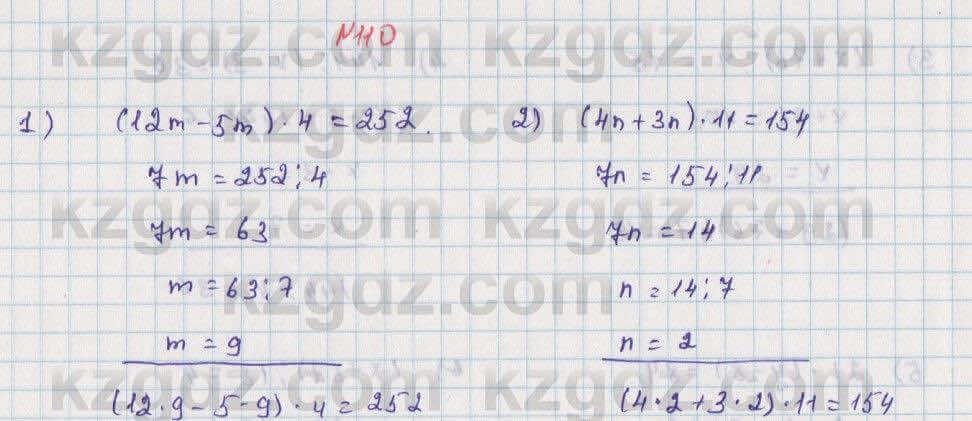 N110
1) (12m - 5m) · 4 = 252. 2) (4n + 3n) · 11 = 154
7m = 252 : 4 7n = 154 : 11
7m = 63 7n = 14
m = 63 : 7 n = 14 : 7
m = 9 n = 2
(12 · 9 - 5 · 9) · 4 = 252 (4 · 2 + 3 · 2) · 11 = 154
kzgdz.com kzgdz.com
kzgdz.com
kzgdz.com kzgdz.com
kzgdz.com
kzgdz.com kzgdz.com